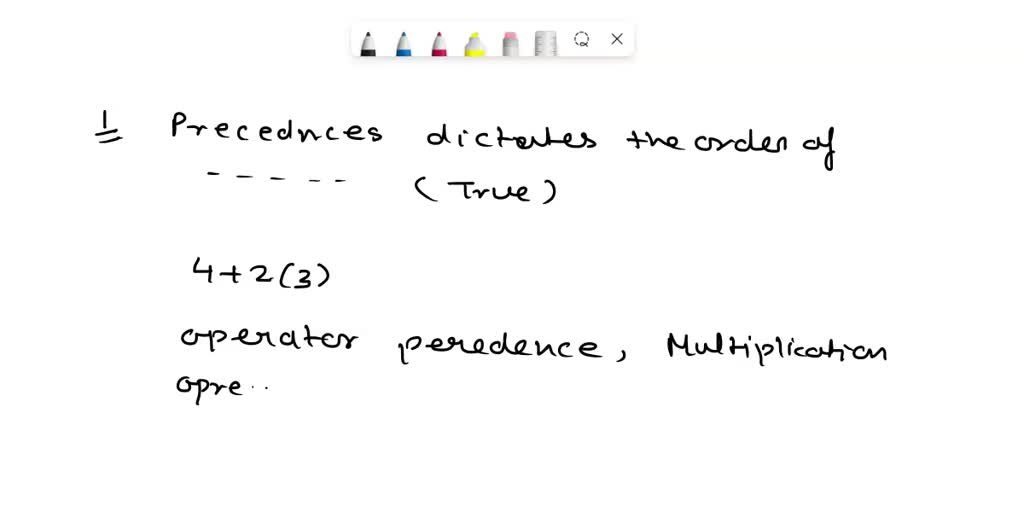 1 Precednces dictates the order of
----- (True)
4+2(3)
operator peredence, Multiplication
opre..